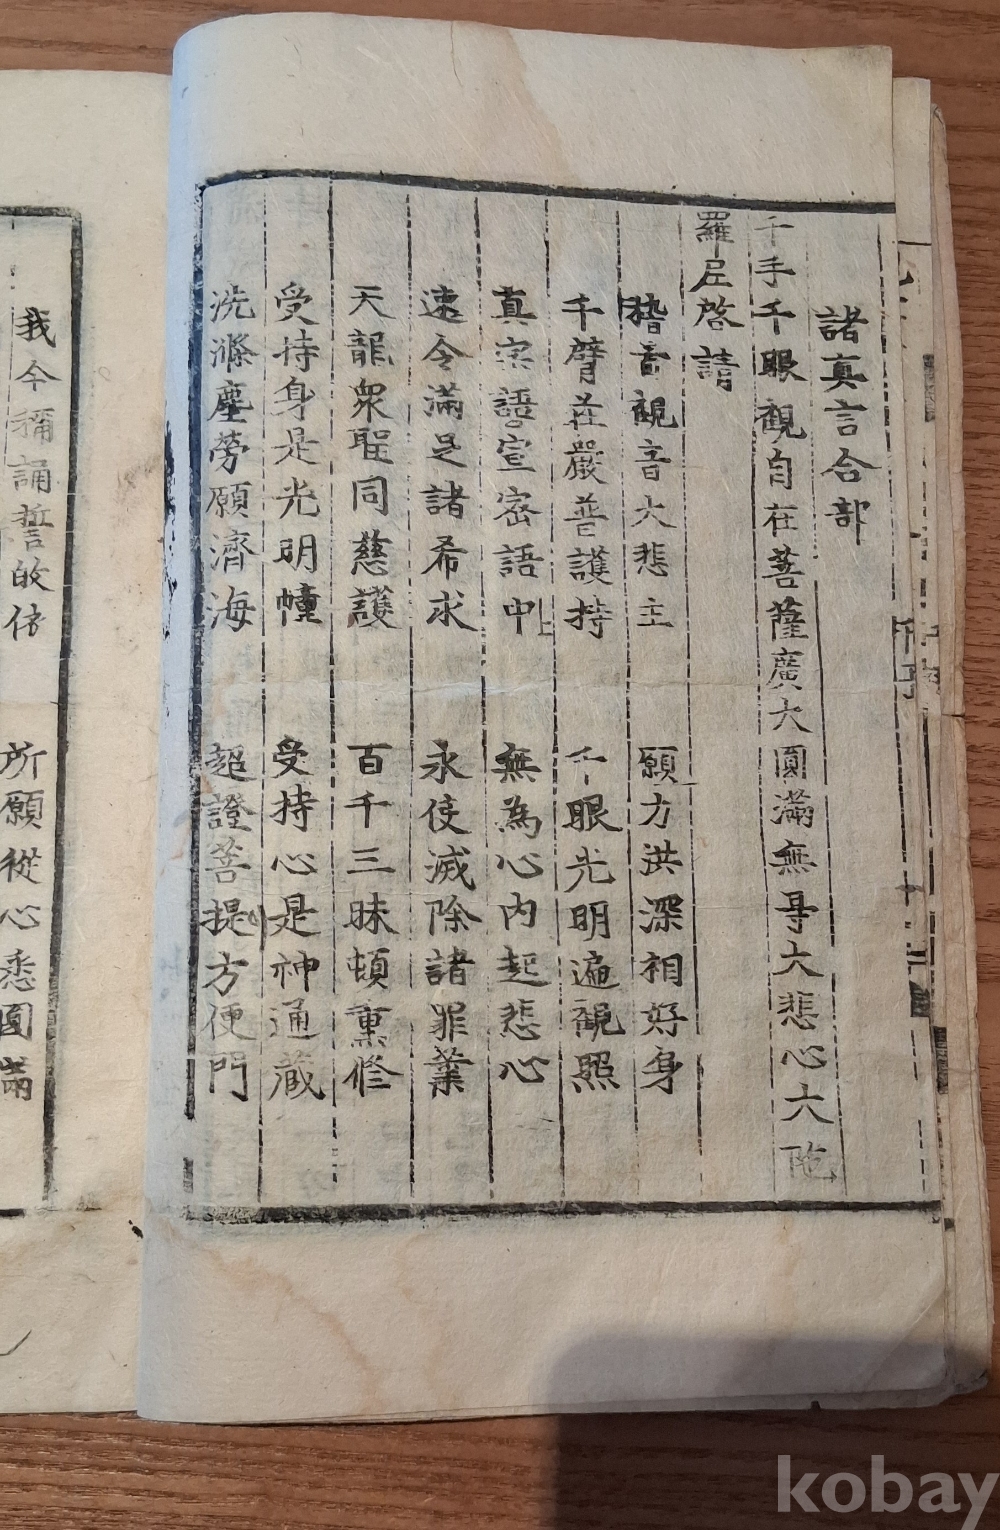 諸真言合部
千手千眼觀自在菩薩廣大圓滿無㝵大悲心大陁
羅尼啓請
稽首觀音大悲主 願力洪深相好身
千臂莊嚴普護持 千眼光明遍觀照
真實語宣密語中 無為心內起悲心
速令滿足諸希求 永使滅除諸罪業
天龍衆聖同慈護 百千三昧頓熏修
受持身是光明幢 受持心是神通藏
洗滌塵勞願濟海 超證菩提方便門
我今稱誦誓㱕依 所願從心悉圓滿
kobay